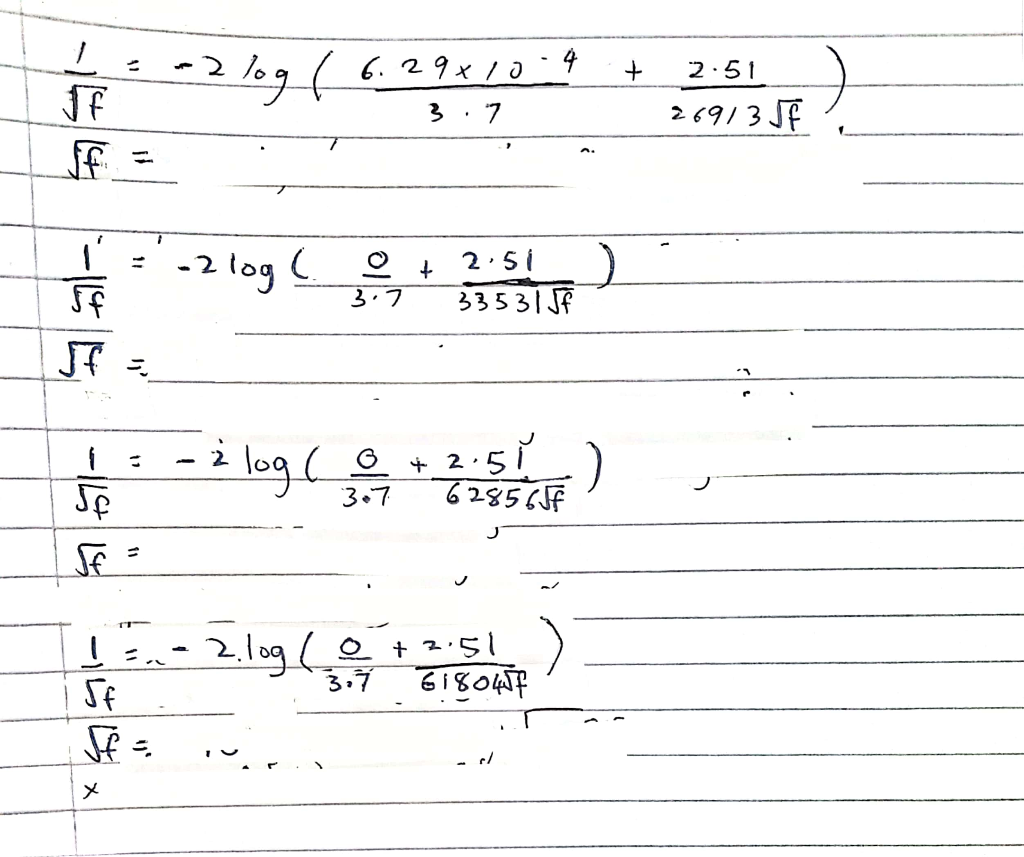 1/√f = -2 log ( 6.29x10^-4 / 3.7 + 2.51 / 26913√f )
√f =
1/√f = -2 log ( 0/3.7 + 2.51 / 33531√f )
√f =
1/√f = -2 log ( 0/3.7 + 2.51 / 62856√f )
√f =
1/√f = -2.log ( 0/3.7 + 2.51 / 61804√f )
√f =
x